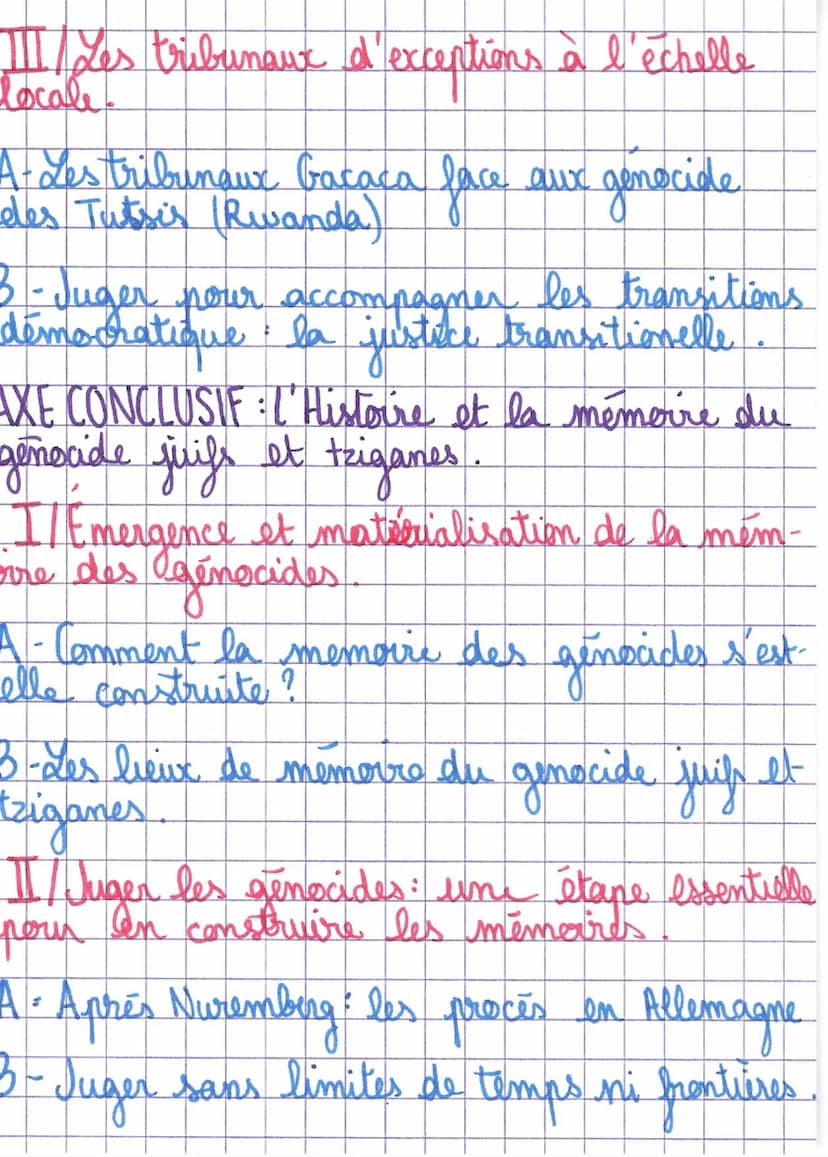 III/Les tribunaux d'exceptions à l'échelle
locale.
A-Les tribunaux Gacaca face aux génocide
des Tutsis (Rwanda)
B-Juger pour accompagner les transitions
démocratique : la justice transitionelle.
AXE CONCLUSIF : l'Histoire et la mémoire du
génocide juifs et tziganes.
I/Émergence et matérialisation de la mém-
oire des génocides.
A-Comment la memoire des génocides s'est-
elle construite ?
B-Les lieux de mémoire du genocide juifs et
tziganes.
II/Juger les génocides : une étape essentielle
pour en construire les mémoires.
A-Après Nuremberg : les procès en Allemagne
B-Juger sans limites de temps ni frontières.